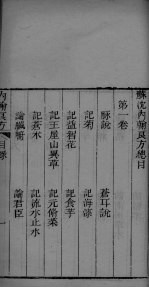 蘇沈內翰良方總目
第一卷
脉說 蒼耳說
記菊 記海漆
記益智花 記食芋
記王屋山異草 記元脩菜
記蒼朮 記流水止水
論臟腑 論君臣
內翰良方 目錄 一